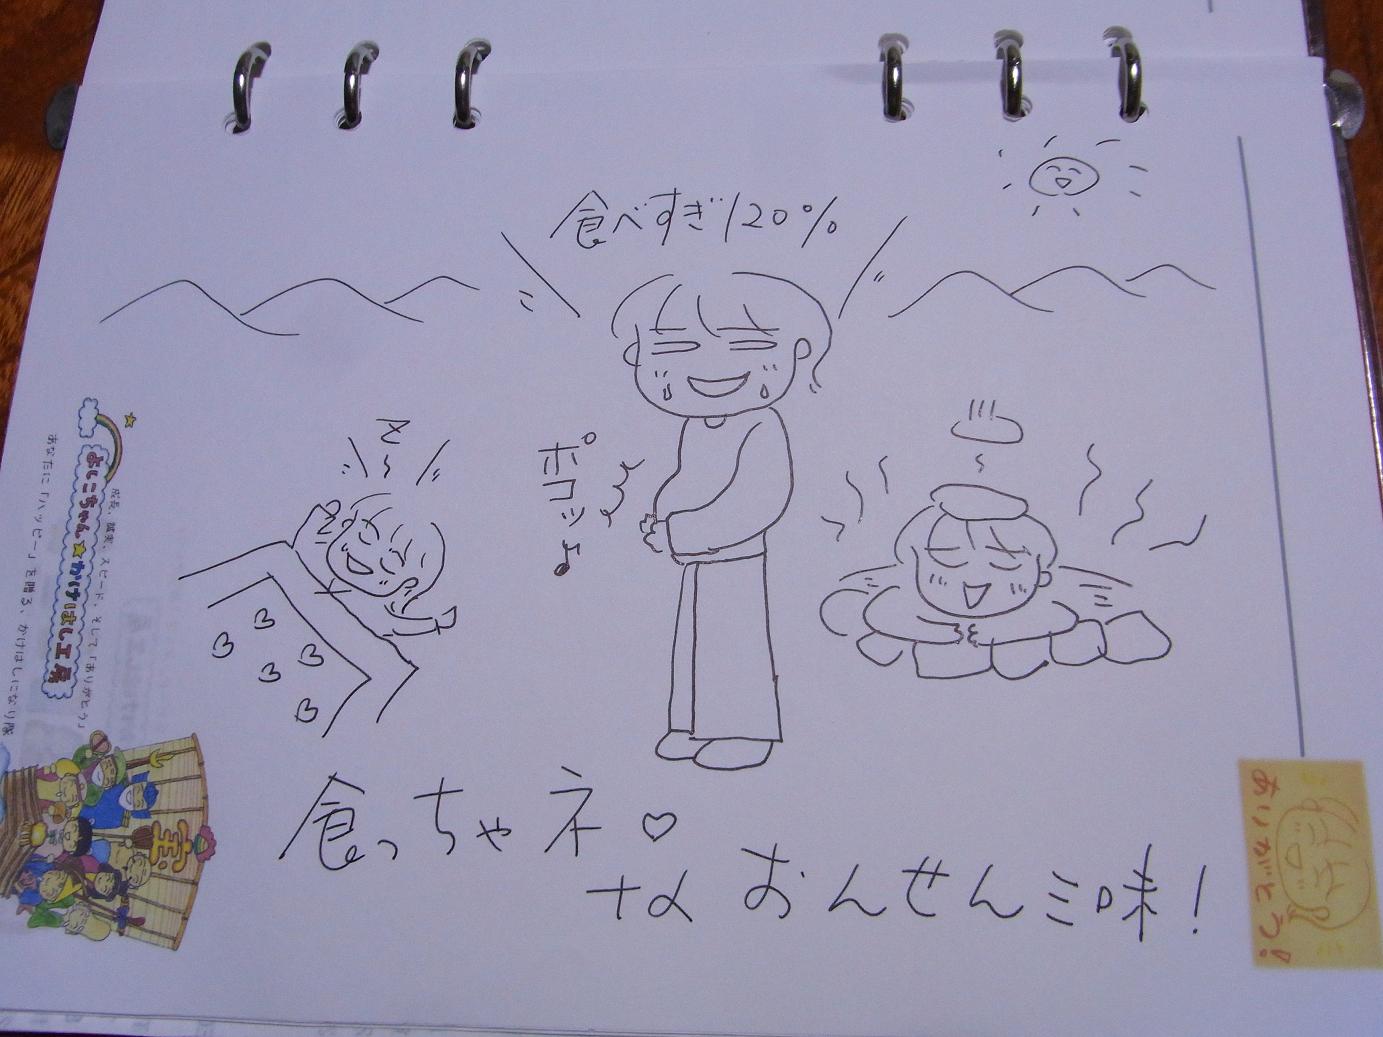 食べすぎ120%
Z
ポコッ♪
食っちゃネ♡
なおんせん三味!
成長、誠実、スピード、そして「ありがとう」
よしこちゃん★かけはし工房
あなたに「ハッピー」を贈る、かけはしになり隊
宝
ありがとう!